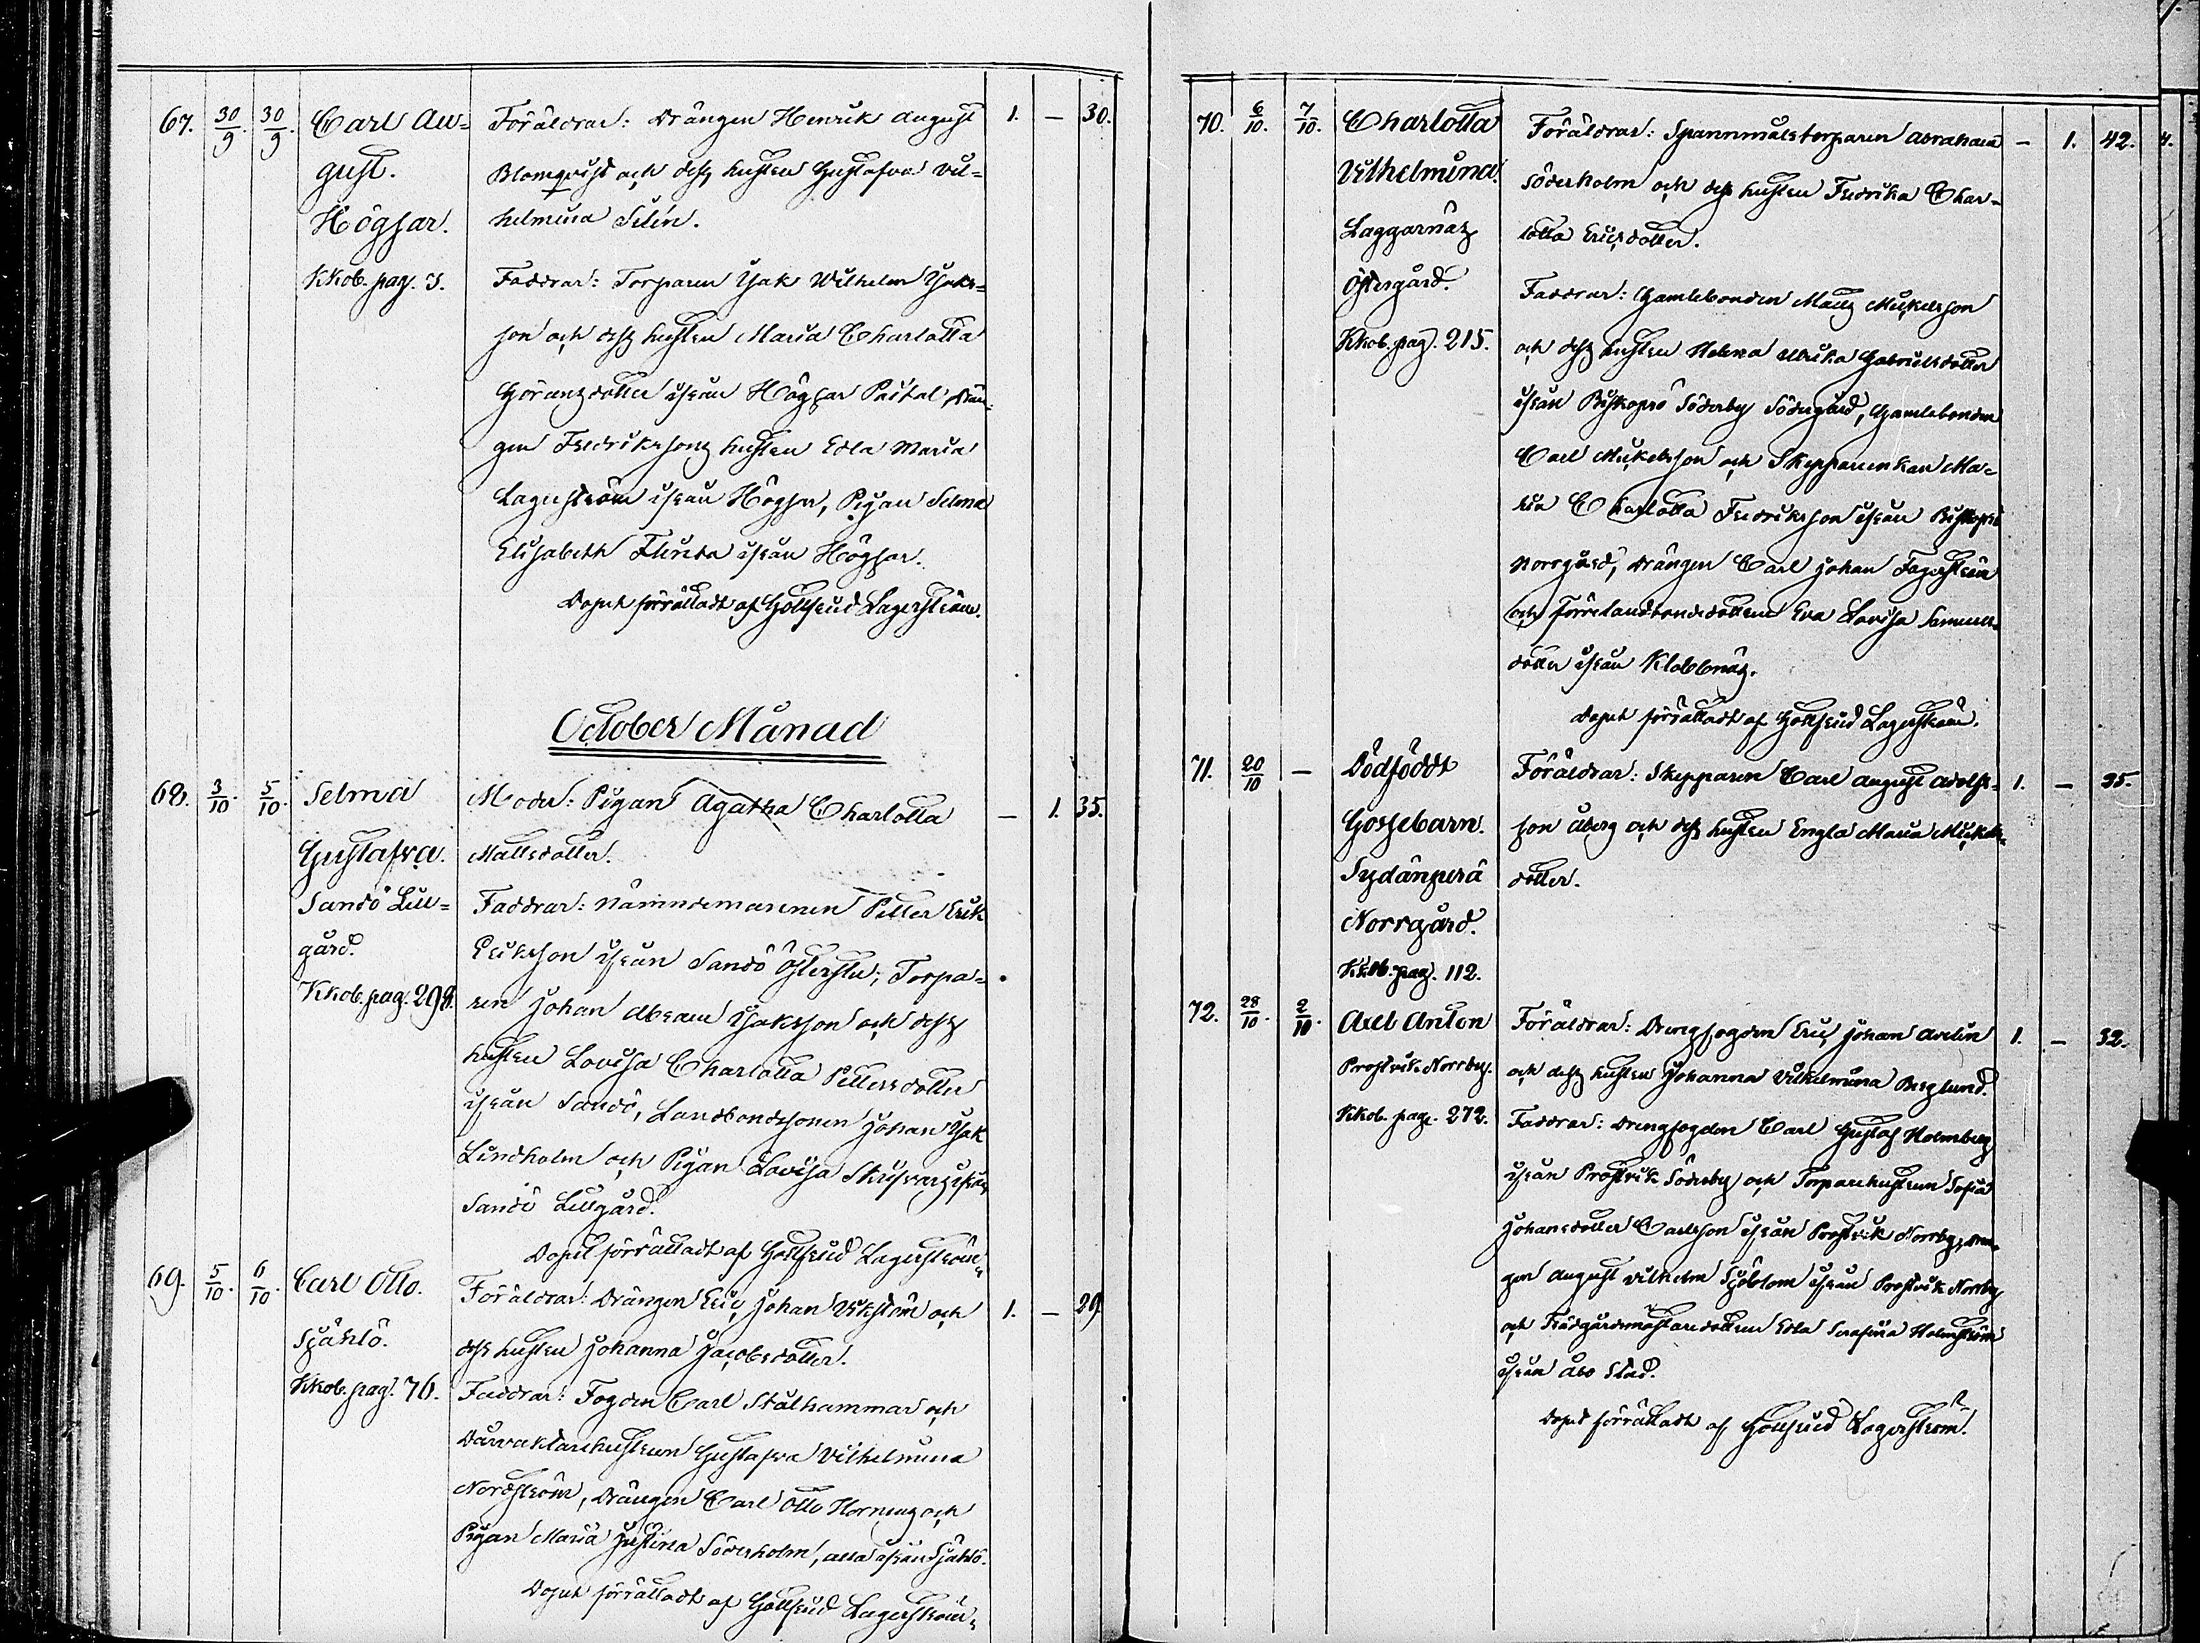 67. 30/9. 30/9. Carl Au= Föräldrar: Drängen Henrik August 1. — 30.
gust. Blomqvist och dess hustru Gustafva Vil=
Högsar. helmina Selin.
Kkob. pag. 3. Faddrar: Torparen Isak Wilhelm Isaks=
son och dess hustru Maria Charlotta
Göransdotter ifrån Högsar Paital, Drän=
gen Fredrikssons hustru Edla Maria
Lagerström ifrån Högsar, Pigan Selma
Elisabeth Flinta ifrån Högsar.
Dopet förrättadt af Gottfrid Lagerström.
October Månad
68. 3/10. 5/10. Selma Moder: Pigan Agatha Charlotta — 1. 35.
Gustafva. Mattsdotter.
Sandö Lill= Faddrar: Nämndemannen Petter Erik
gård. Eriksson ifrån Sandö Öfverstu, Torpa=
Kkob. pag. 298. ren Johan Abram Isaksson och dess
hustru Lovisa Charlotta Pettersdotter
ifrån Sandö, Landbondsonen Johan Isak
Lindholm och Pigan Lovisa ifrån
Sandö Lillgård.
Dopet förrättadt af Gottfrid Lagerström.
69. 5/10. 6/10. Carl Otto. Föräldrar: Drängen Eric Johan Wikström och 1. — 29.
Själö. dess hustru Johanna Jacobsdotter.
Kkob. pag. 76. Faddrar: Fogden Carl Stålhammar och
Dårvaktarehustrun Gustafva Vilhelmina
Nordström, Drängen Carl Otto Hornung och
Pigan Maria Justina Söderholm, alla ifrån Själö.
Dopet förrättadt af Gottfrid Lagerström.
70. 6/10. 7/10. Charlotta Föräldrar: Spannmålstorparen Abraham — 1. 42.
Vilhelmina. Söderholm och dess hustru Fredrika Char=
Laggarnäs lotta Ericsdotter.
Östergård. Faddrar: Gamlebonden Matts Mickelsson
Kkob. pag. 215. och dess hustru Helena Ulrika Gabrielsdotter
ifrån Biskopsö Söderby Södergård, Gamlebonden
Carl Mickelsson och Skepparenkan Ma=
ria Charlotta Fredriksson ifrån Biskopsö
Norrgård, Drängen Carl Johan Fagerström
och Förrelandbondedottren Eva Lovisa Samuels=
dotter ifrån Klobbnäs.
Dopet förrättadt af Gottfrid Lagerström.
71. 20/10 — Dödföddt Föräldrar: Skepparen Carl August Adolfs= 1. — 35.
Gossebarn. son Åberg och dess hustru Engla Maria Mickels=
Sydänperä dotter.
Norrgård.
Kkob. pag. 112.
72. 28/10. 2/11 Axel Anton Föräldrar: Drengfogden Eric Johan Avelin 1. — 32.
Prostvik Norrby. och dess hustru Johanna Vilhelmina Berglund.
Kkob. pag. 272. Faddrar: Drengfogden Carl Gustaf Holmberg
ifrån Prostvik Söderby och Torparehustrun Sofia
Johansdotter Carlsson ifrån Prostvik Norrby, Drän=
gen August Vilhelm Sjöblom ifrån Prostvik Norrby
och Trädgårdsmästaredottren Edla Serafina Holmström
ifrån Åbo Stad.
Dopet förrättadt af Gottfrid Lagerström.